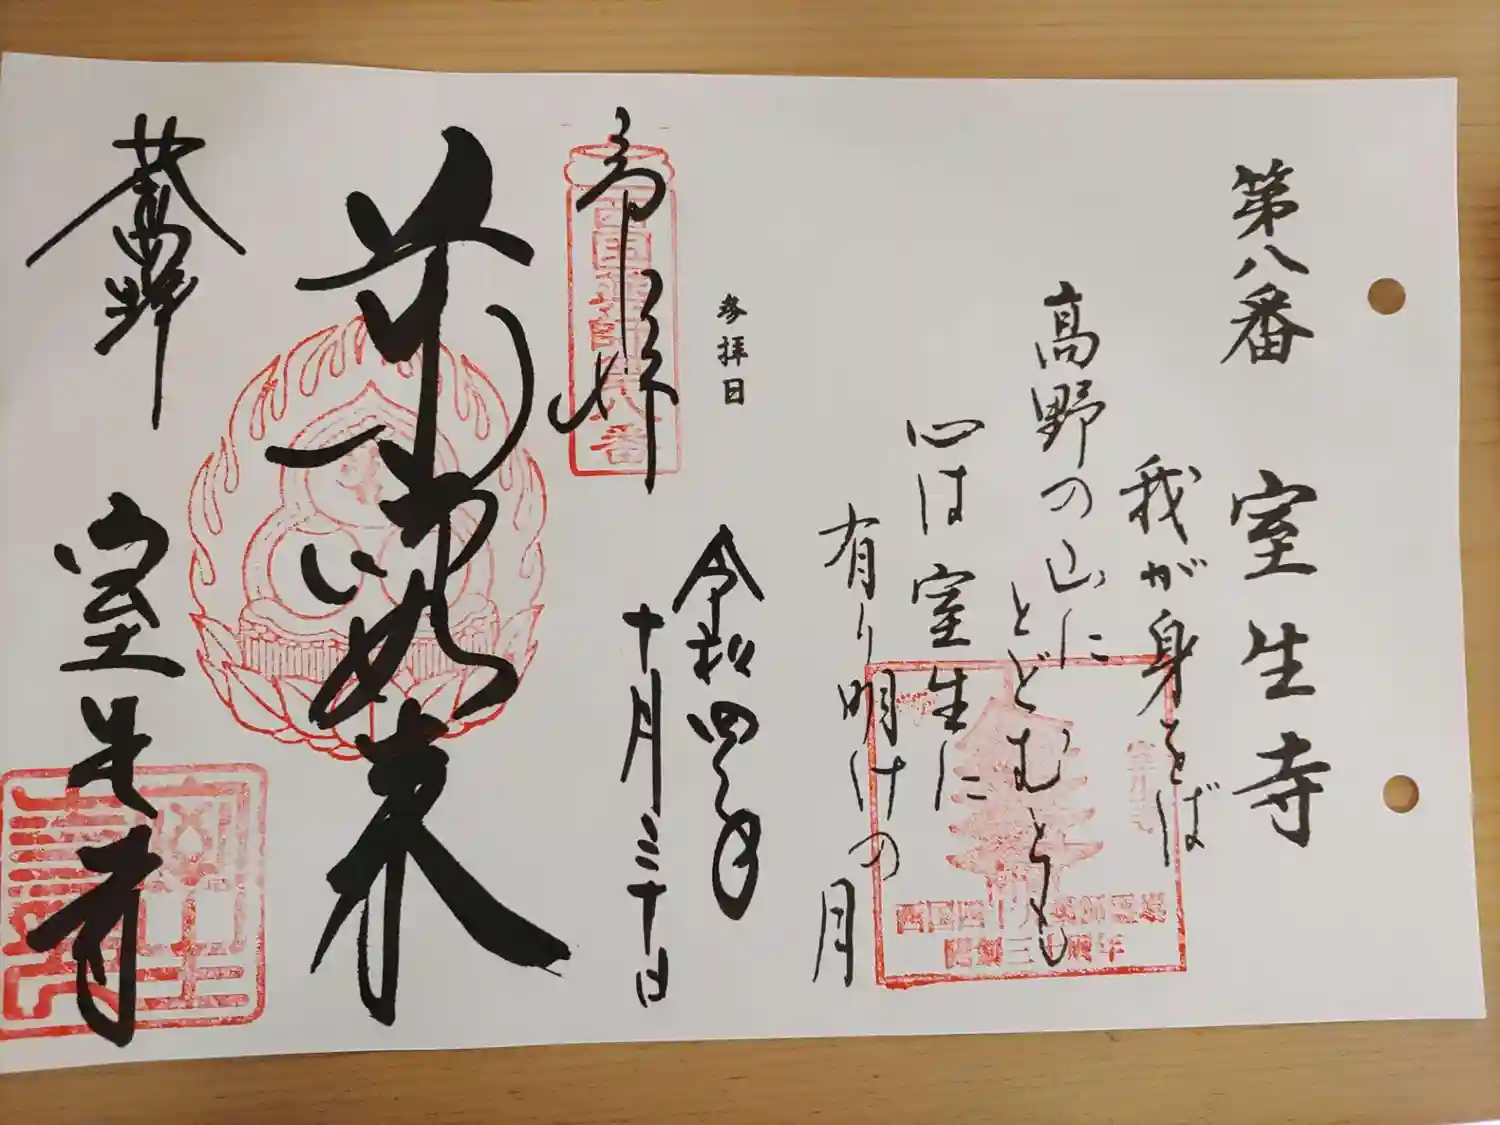 第八番 室生寺
我が身をば
高野の山に
とどむとも
心は室生に
有り明けの月
室生寺
西国四十九薬師霊場
開創三十周年
参拝日
令和四年
十月三十日
奉拝
西国薬師第八番
薬師如来
室生寺